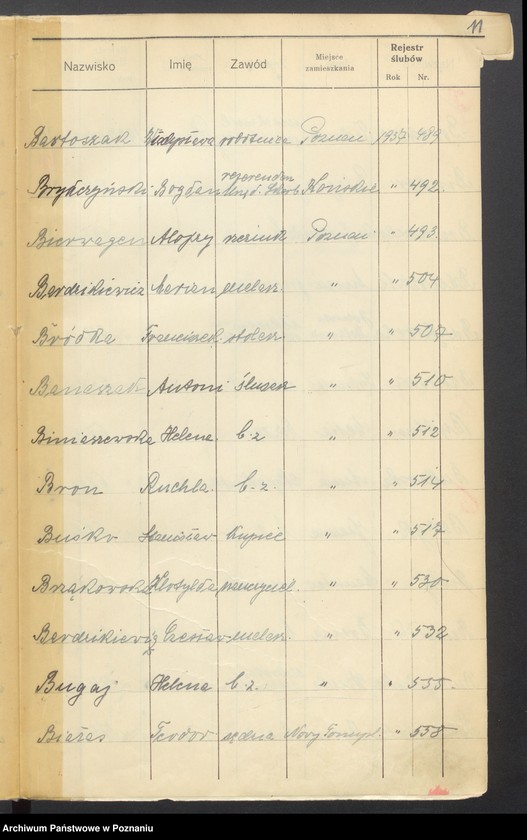 11
Nazwisko Imię Zawód Miejsce zamieszkania Rejestr ślubów Rok Nr.
Bartoszak robotnica Poznań 1937 489
referendarz
Bryńczyński Bogdan Urzęd. Skarb Końskie " 492.
Bierwagen Alojzy rzeźnik Poznań " 493.
Berdzikiewicz Marian malarz. " " 504
Bródka Franciszek stolarz " " 507
Banaszak Antoni ślusarz " " 510
Biniaszewska Helena b.z " " 512
Bron Ruchla. b. z. " " 514
Buśko Stanisław kupiec " " 517
Brząkowsk Klotylda nauczyciel. " " 530
Berdzikiewicz Czesław malarz. " " 532
Bugaj Helena b z. " " 555.
Białas Teodor sędzia Nowy Tomyśl. " 558
Archiwum Państwowe w Poznaniu